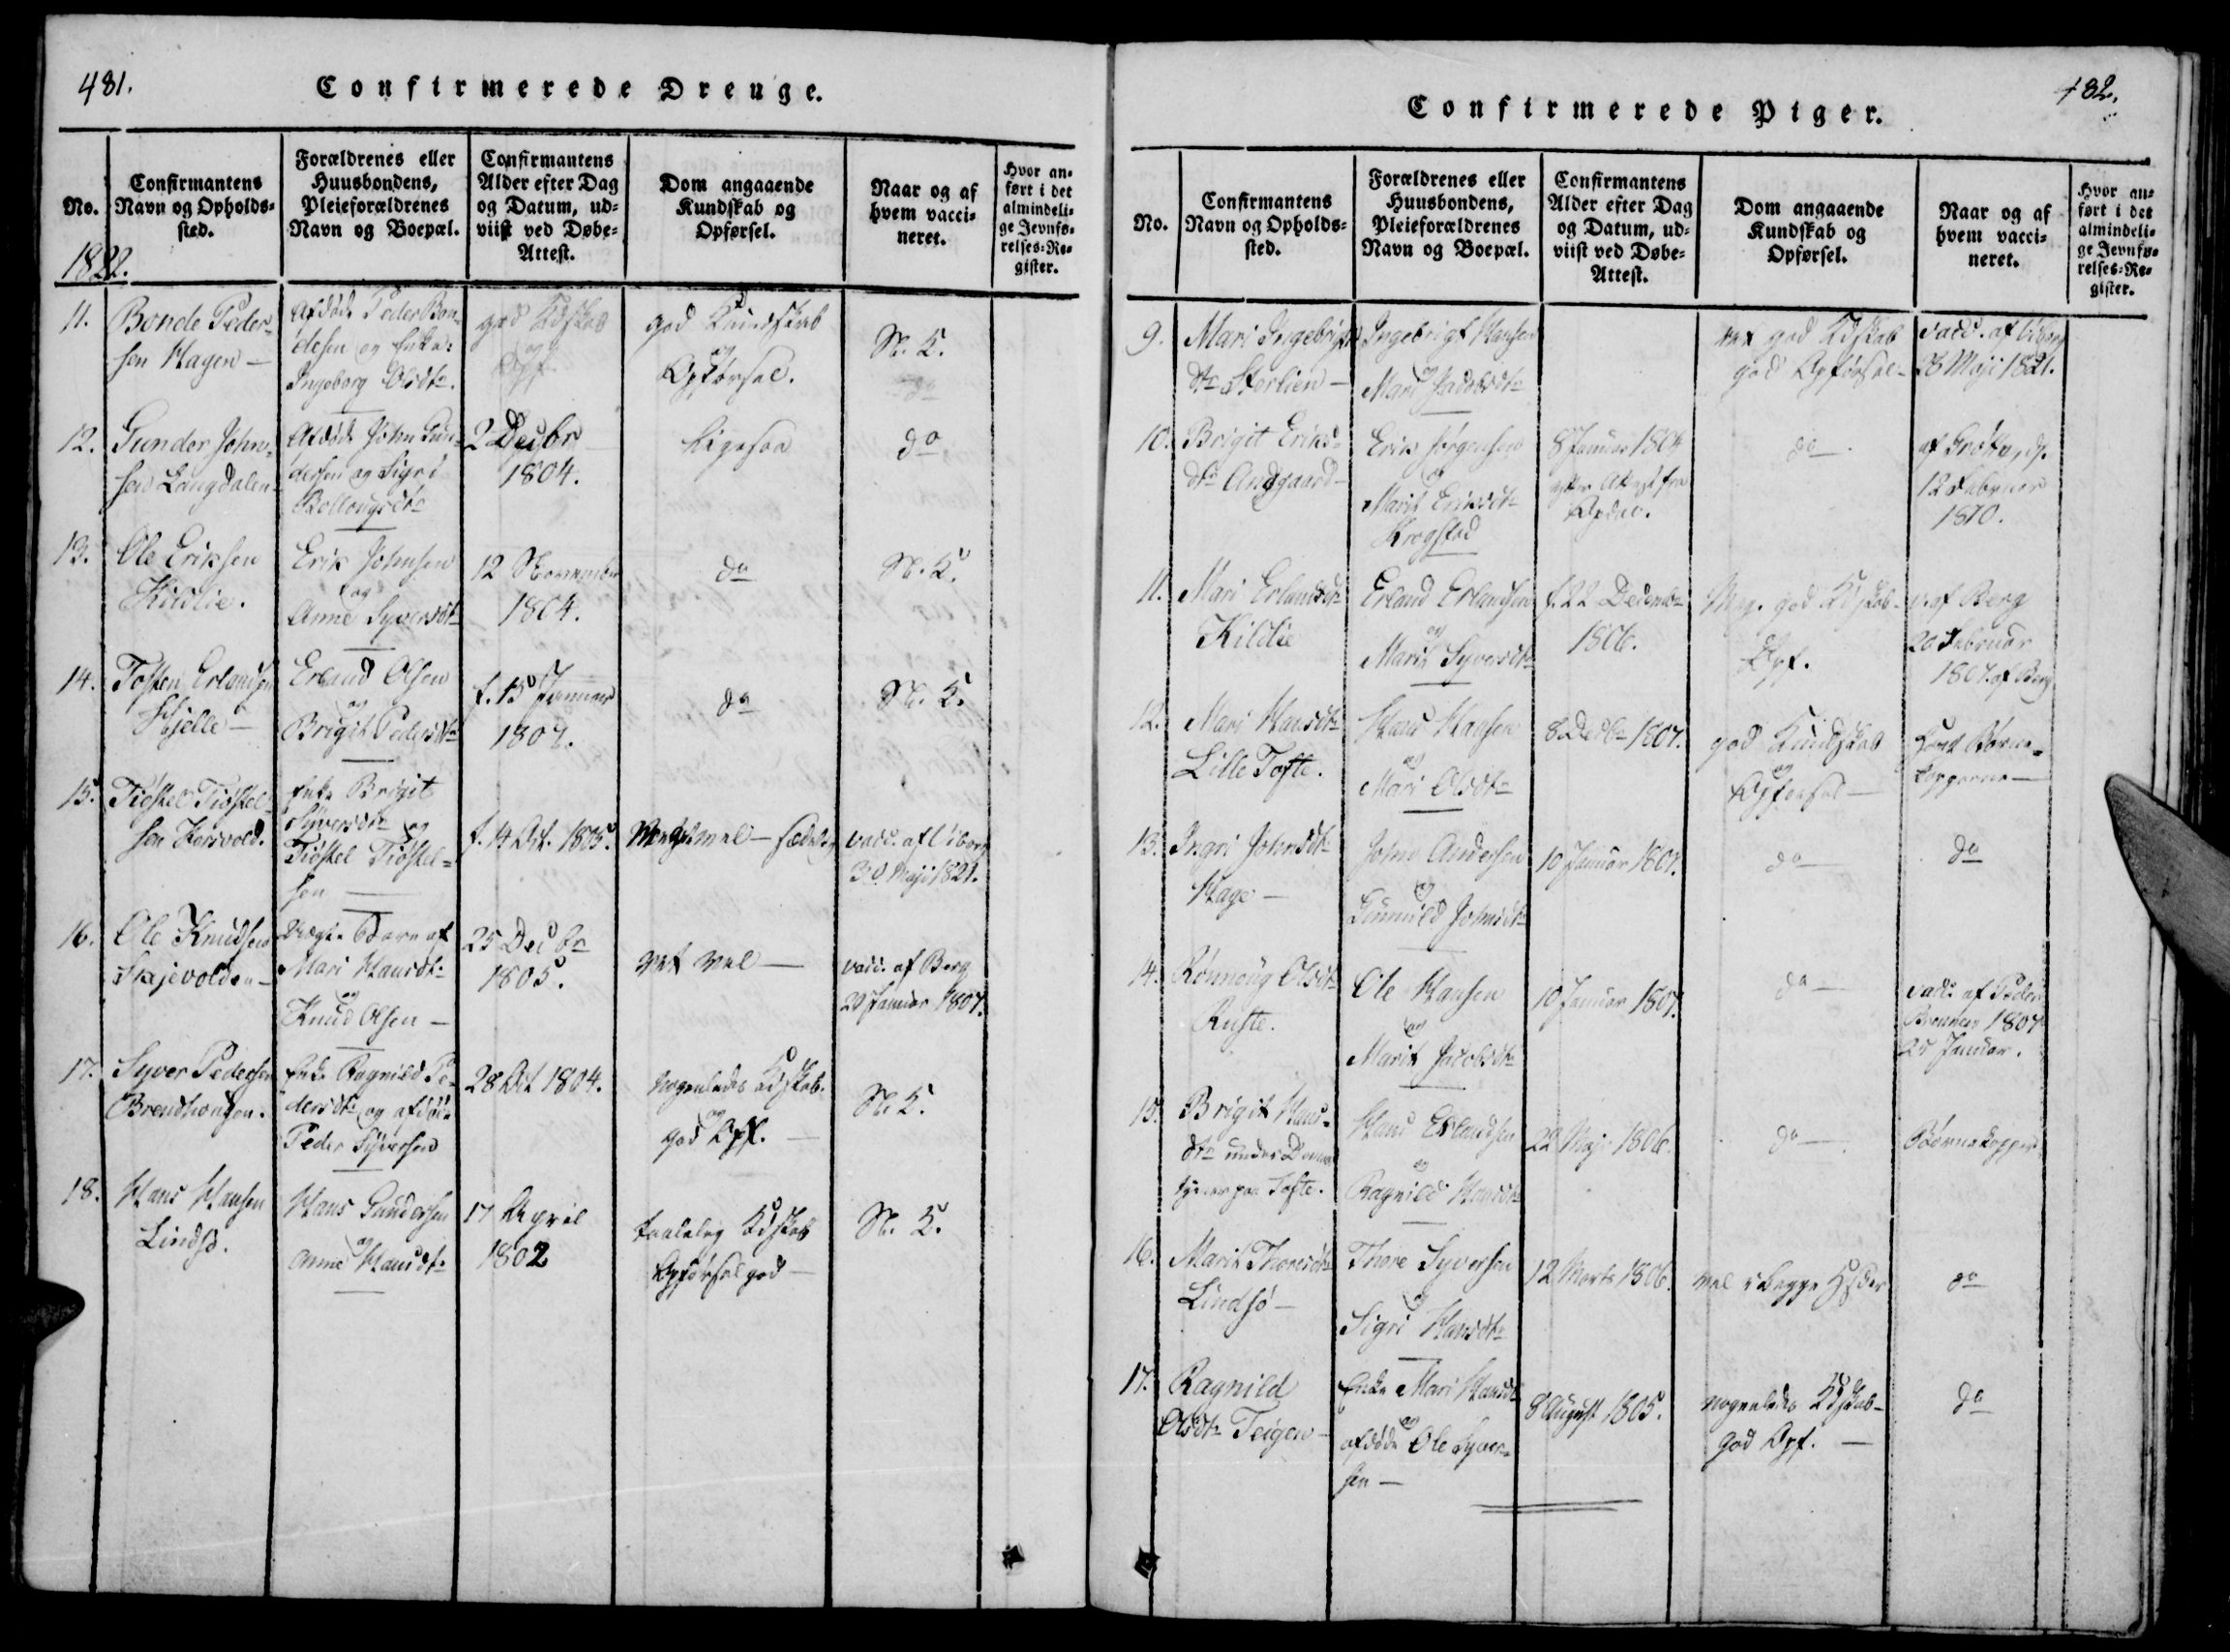 481.
Confirmerede Drenge.
No.
Confirmantens
Navn og Opholds=
sted.
Forældrenes eller
Huusbondens,
Pleieforældrenes
Navn og Boepæl.
Confirmantens
Alder efter Dag
og Datum, ud=
viist ved Døbe=
Attest.
Dom angaaende
Kundskab og
Opførsel.
Naar og af
hvem vacci=
neret.
Hvor an=
ført i det
almindeli=
ge Jevnfø=
relses=Re=
gister.
1822.
11.
Bonde Peder=
sen Hagen —
Afdøde Peder Bon=
desen og Enke
Ingeborg Olsdtr.
god Kdskab
og
Opf.
god Kundskab
og
Opførsel.
N. K.
do
12.
Gunder John=
sen Langdalen
Afdøde John Gun=
dersen og Sigri
2 Decbr
1804.
ligesaa
do
13.
Ole Eriksen
Kidlie.
Erik Johnsen
og
Anne Syversdtr
12 November
1804.
do
N. K.
14.
Tosten Erlandsen
Skjelle —
Erland Olsen
og
Brigit Pedersdtr
f. 15 Januar
1807.
do
N. K.
15.
Tiøstel Tiøstel=
sen Horsvold.
Enke Brigit
Syversdtr og
Tiøstel Tiøstel=
sen —
f. 14 Oct. 1805.
Meget vel —
vacc. af
30 Maji 1821.
16.
Ole Knudsen
Skjevolden —
Uægte Barn af
Mari Hansdtr
og
Knud Olsen —
25 Decbr
1805.
vel —
vacc. af Berg
20 Januar 1807.
17.
Syver Pedersen
Brendhougen.
Enke Ragnild Pe=
dersdtr og afdøde
Peder Syversen
28 Oct 1804.
nogenledes Kdskab.
og
god Opf. —
N. K.
18.
Hans Hansen
Lindsø.
Hans Gundersen
og
Anne Hansdtr
17 April
1802
taalelig Kdskab
Opførsel god —
N. K.
482.
Confirmerede Piger.
No.
Confirmantens
Navn og Opholds=
sted.
Forældrenes eller
Huusbondens,
Pleieforældrenes
Navn og Boepæl.
Confirmantens
Alder efter Dag
og Datum, ud=
viist ved Døbe=
Attest.
Dom angaaende
Kundskab og
Opførsel.
Naar og af
hvem vacci=
neret.
Hvor an=
ført i det
almindeli=
ge Jevnfø=
relses=Re=
gister.
9.
Mari Ingebrigts
dtr Storlien —
Ingebrigt Hansen
og
Mari Jacobsdtr
god Kdskab
god Opførsel —
vacc. af
28 Maji 1821.
10.
Brigit Eriks=
dtr Andgaard —
Erik Jørgensen
og
Marit Eriksdtr
Krogstad
8 Januar 1804
efter Attest fra
Opdal.
do.
af
12 Februar
1810.
11.
Mari Erlandsdtr
Kildlie
Erland Erlandsen
og
Marit Syversdtr
f. 22 Decembr
1806.
Meg. god Kdskab
Opf.
v. af Berg
20 Februar
1807. af Berg
12.
Mari Hansdtr
Lille Tofte.
Hans Hansen
og
Mari Olsdtr
8 Decbr 1807.
god Kundskab
og
Opførsel —
havt Børne=
kopperne —
13.
Ingri Johnsdtr
Hage —
John Andersen
og
Gunnild Johnsdtr
10 Januar 1807.
do
do
14.
Rønnoug Olsdtr
Ruste.
Ole Hansen
og
Marit Jacobsdtr
10 Januar 1807.
do —
vacc. af Peder
1807
25 Januar.
15.
Brigit Hans=
dtr under
tjener paa Tofte.
Hans Erlandsen
og
Ragnild Hansdtr
22 Maji 1806.
do —
Børnekopper
16.
Marit Thoresdtr
Lindsø —
Thore Syversen
og
Sigri Hansdtr
12 Marts 1806.
vel i begge Hsder
do
17.
Ragnild
Olsdtr Teigen —
Enke Mari Hansdtr
og
afdøde Ole Syver=
sen —
8 August 1805.
nogenledes Kdskab —
god Opf. —
do